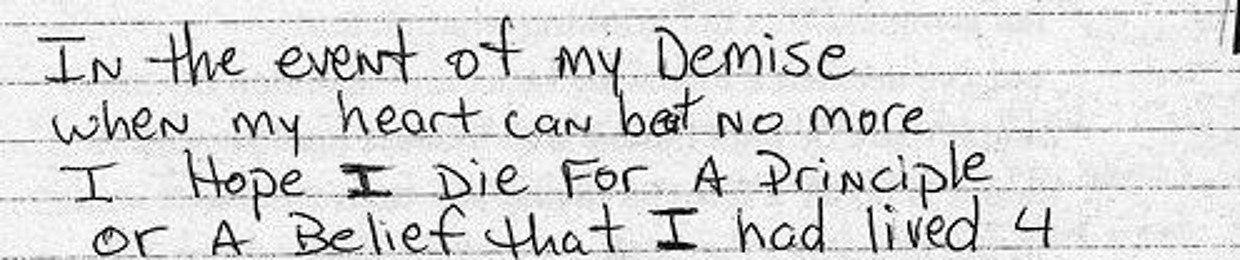 IN the event of my Demise
when my heart can beat NO more
I Hope I Die For A Principle
or A Belief that I had lived 4